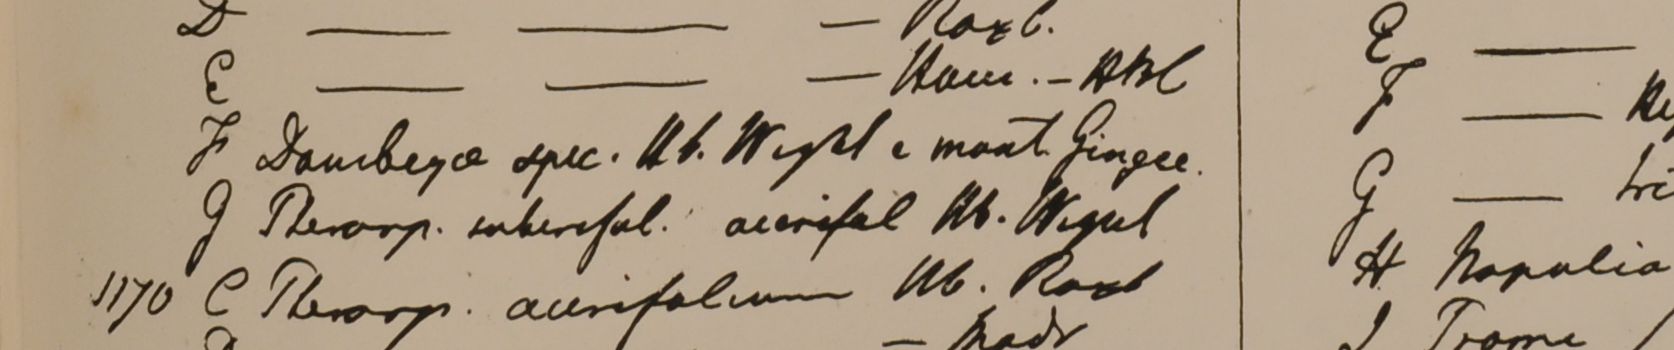 D — — — Roxb.
E — — — Ham. - HBC
F Dombeyae spec. Hb. Wight e mont. Gingee.
G Pterosp. suberifol. acerifol Hb. Wight
1170 C Pterosp. acerifolium Hb. Roxb
— Madr
E —
F —
G —
H Napalia
I Trome